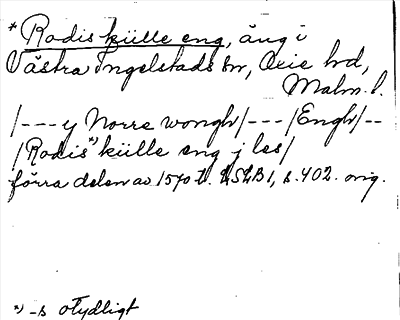 * Rodis külle eng, äng i
Västra Ingelstads sn, Oxie hd,
Malm. l.
/--- y Norre wongh/--- /Engh/--
/Rodis*) külle eng j les/
förra delen av 1570 t. LSLB 1, s. 402. orig.
*) -s otydligt